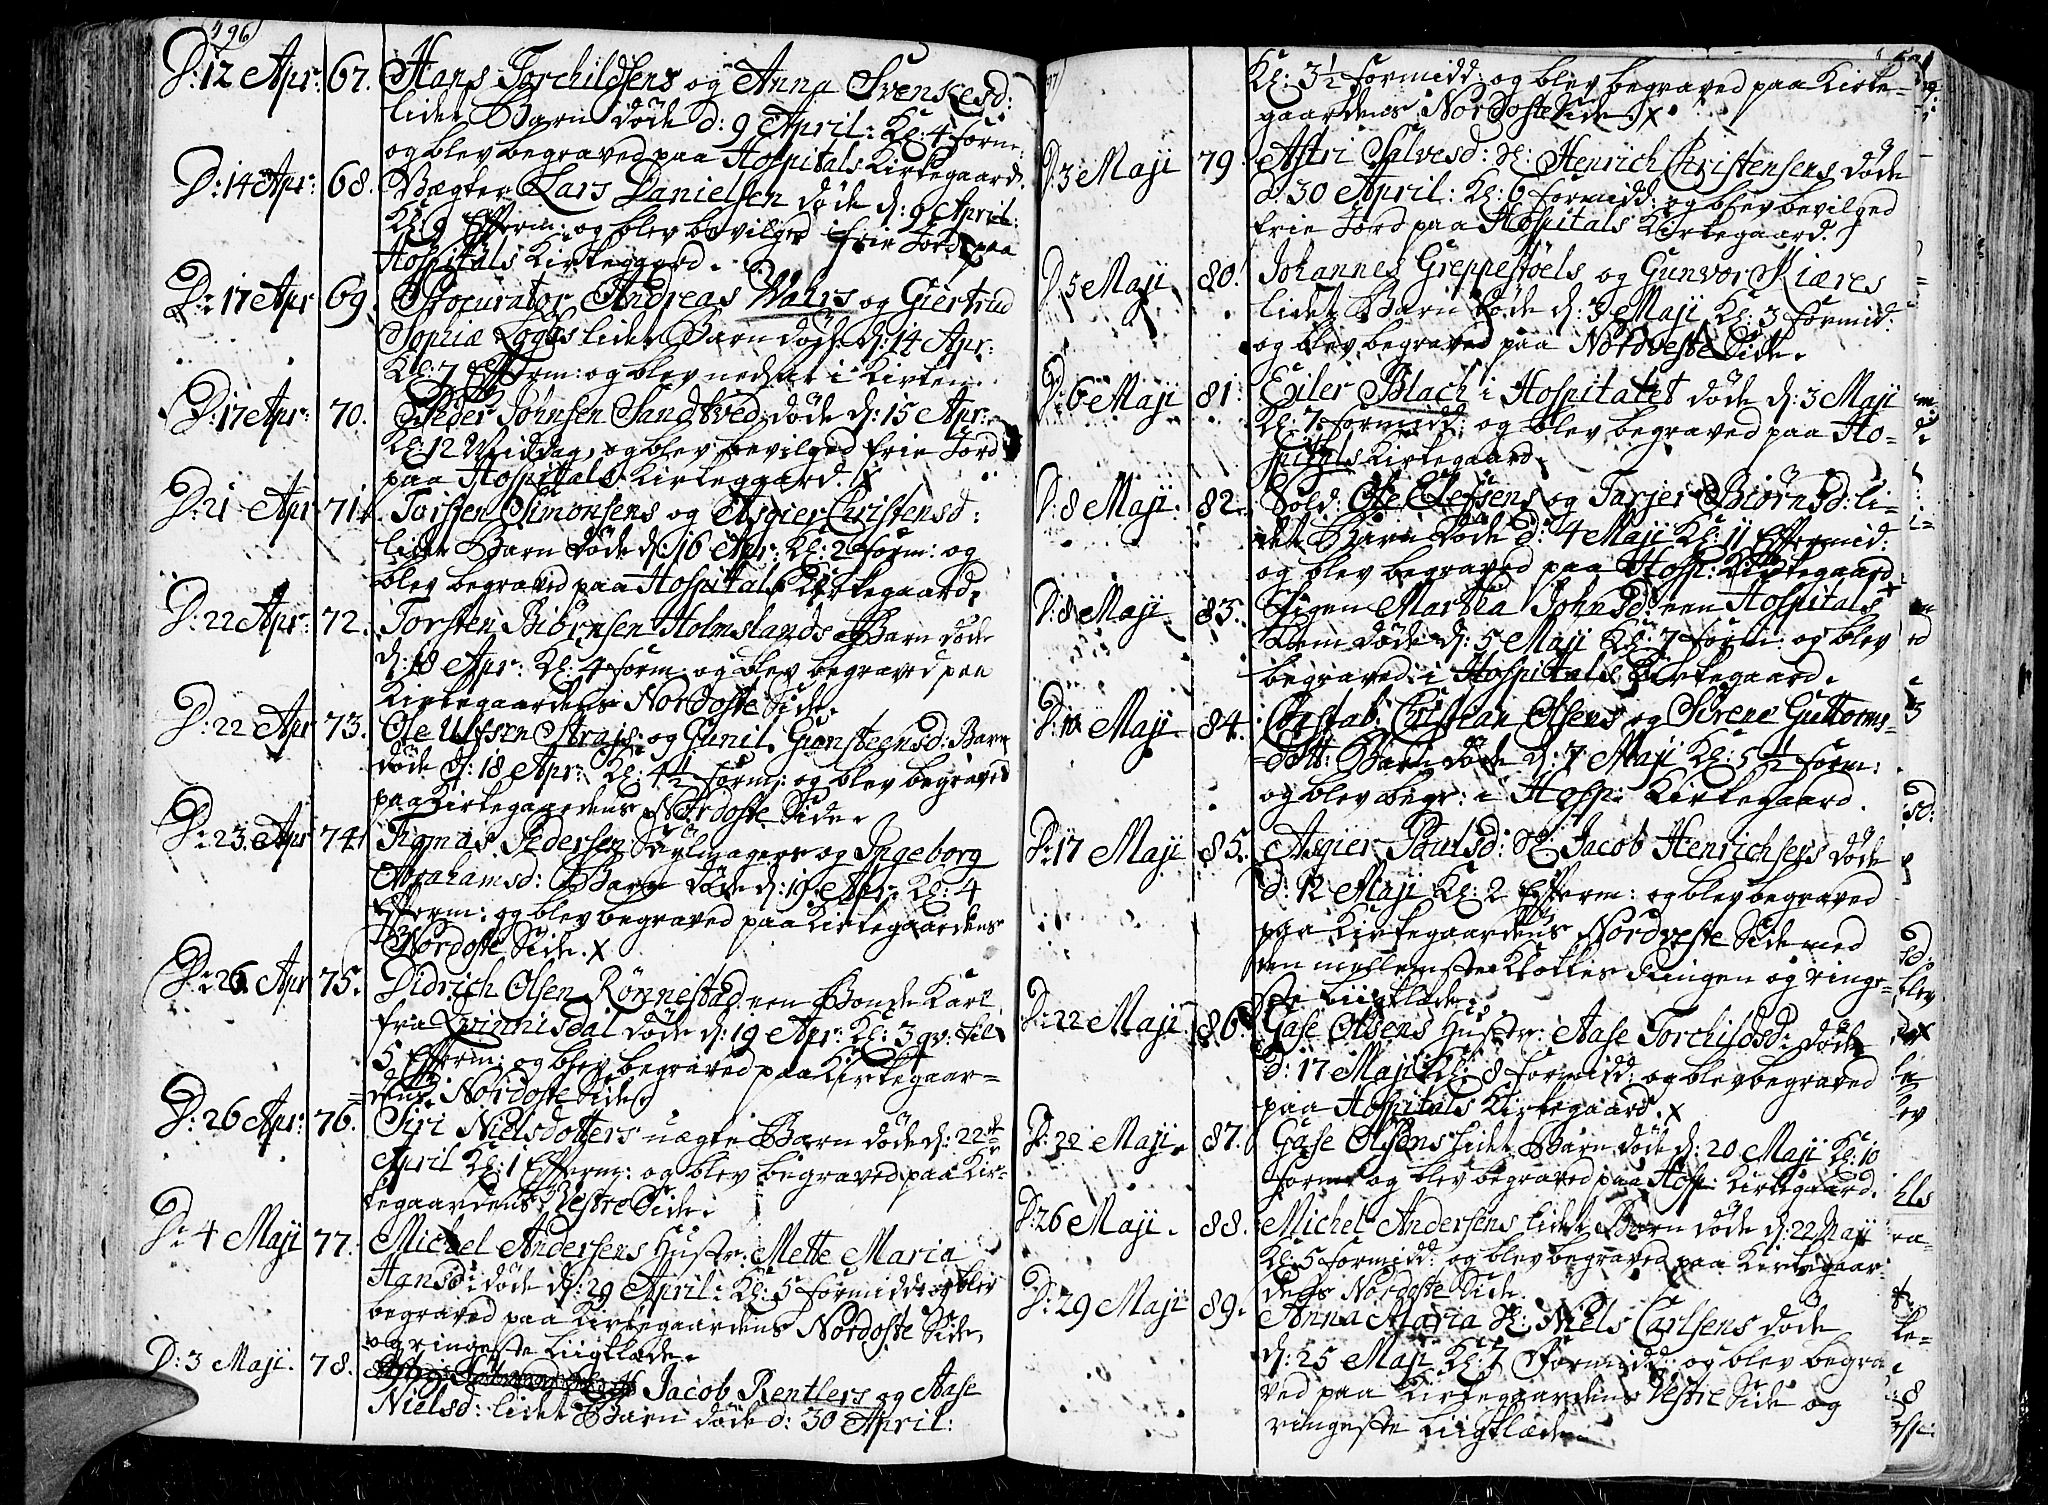 496
D: 12 Apr: 67. Hans Torchildsens og Anna Svenkesd:
lidet Barn døde d: 9 April: Kl: 4 form:
og blev begraved paa Hospitals Kirkegaard.
D: 14 Apr: 68. Vægter Lars Danielsen døde d: 9 April:
Kl: 9 Efterm: og blev bevilged frie Jord paa
Hospitals Kirkegaard.
D: 17 Apr 69. Procurator Andreas Wahrs og Giertrud
Sophia lidet Barn døde d: 14 Apr:
Kl: 7 Efterm: og blev nedsat i Kirken.
D: 17 Apr: 70. Peder Johnsen Sandved døde d: 15 Apr:
Kl: 12 Middag, og blev bevilged frie Jord
paa Hospitals Kirkegaard. X
D: 21 Apr 71. Torsten Simonsens og Asgier Christensd:
lidet Barn døde d: 16 Apr: Kl: 2 form: og
blev begraved paa Hospitals Kirkegaard.
D: 22 Apr: 72. Torsten Biörnsen Holmslands Barn døde
d: 18 Apr: Kl: 4 form: og blev begraved paa
Kirkegaardens Nordoste Side.
D: 22 Apr 73. Ole Ulfsen Strajs og Gunil Gunsteensd: Barn
døde d: 18 Apr: Kl: 4½ form: og blev begraved
paa Kirkegaardens Nordoste Side.
D: 23 Apr 74. Tigmas Pedersen og Ingeborg
Abrahamsd: Barn døde d: 19 Apr: Kl: 4
Efterm: og blev begraved paa Kirkegaardens
Nordoste Side. X
D: 26 Apr 75. Didrich Olsen Rönnestad een Bonde Karl
fra Qvinnisdal døde d: 19 Apr: Kl: 3 qv: til
5 Efterm: og blev begraved paa Kirkegaar=
=dens Nordoste Side.
D: 26 Apr: 76. Siri Nielsdotters uægte Barn døde d: 22de
April Kl: 1 Efterm: og blev begraved paa Kir-
kegaardens Vestre Side.
D: 4 Maji 77. Michel Andersens Hustr: Mette Maria
Hansd: døde d: 29 April: Kl: 5 formidd: og blev
begraved paa Kirkegaardens Nordoste Side,
og ringeste Liigklæde.
D: 3 Maji. 78. Jacob Rentlers og Aase
Nielsd: lidet Barn døde d: 30 April:
Kl: 3½ formidd: og blev begraved paa Kirke=
gaardens Nordoste Side. X
D: 3 Maji 79. Astri Salvesd: Henrich Christensens døde
d: 30 April: Kl: 6 formidd: og blev bevilged
frie Jord paa Hospitals Kirkegaard.
D: 5 Maji 80. Johannes Greppestøels og Gunvor Kiæres
lidet Barn døde d: 3 Maji Kl: 3 formid:
og blev begraved paa Nordveste Side.
D: 6 Maji 81. Eiler Blach i Hospitalet døde d: 3 Maji
Kl: 7 formidd: og blev begraved paa Ho-
spitals Kirkegaard.
D: 8 Maji 82. Sold: Ole Olefsens og Tarjer Biørnsd: li-
det Barn døde d: 4 Maji Kl: 11 Eftermid:
og blev begraved paa Hosp: Kirkegaard
D: 8 Maji 83. Pigen Martha Johnsd: een Hospitals
Lem døde d: 5 Maji Kl: 7 form: og blev
begraved i Hospitals Kirkegaard.
D: 11 Maji 84. Constab: Christian Olsens og Sirene Guttorms-
=dott: Barn døde d: 7 Maji Kl: 5½ form:
og blev begr: i Hosp: Kirkegaard.
D: 17 Maji 85. Asgier Poulsd: Jacob Henrichsens døde
d: 12 Maji Kl: 2 Efterm: og blev begraved
paa Kirkegaardens Nordveste Side med
den mellemste Klokkes Ringen og ringe-
ste Liigklæde.
D: 22 Maji 86. Gase Olsens Hustr: Aase Torchildsd: døde
d: 17 Maji Kl: 8 formidd: og blev begraved
paa Hospitals Kirkegaard. X
D: 22 Maji 87. Gase Olsens lidet Barn døde d: 20 Maji Kl: 10
form: og blev begraved paa Hosp: Kirkegaard.
D: 26 Maji. 88. Michel Andersens lidet Barn døde d: 22 Maji
Kl: 5 formidd: og blev begraved paa Kirkegaar-
dens Nordoste Side.
D: 29 Maji 89. Anna Maria Niels Carlsens døde
d: 25 Maji Kl: 7 Formidd: og blev begra
ved paa Kirkegaardens Vestre Side og
ringeste Liigklæde.